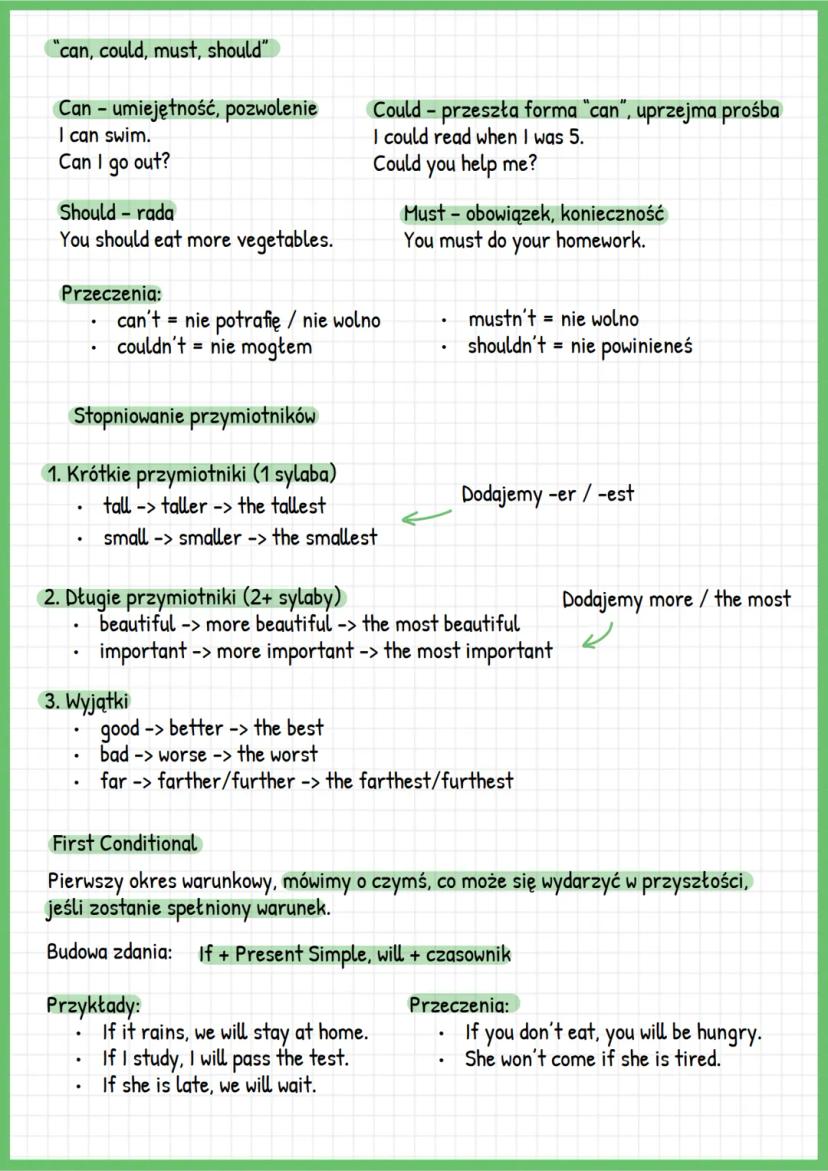 "can, could, must, should"
Can – umiejętność, pozwolenie
I can swim.
Can I go out?
Could – przeszła forma "can", uprzejma prośba
I could read when I was 5.
Could you help me?
Should – rada
You should eat more vegetables.
Must – obowiązek, konieczność
You must do your homework.
Przeczenia:
· can't = nie potrafię / nie wolno
· couldn't = nie mogłem
· mustn't = nie wolno
· shouldn't = nie powinieneś
Stopniowanie przymiotników
1. Krótkie przymiotniki (1 sylaba)
· tall -> taller -> the tallest
· small -> smaller -> the smallest
Dodajemy -er / -est
2. Długie przymiotniki (2+ sylaby)
· beautiful -> more beautiful -> the most beautiful
· important -> more important -> the most important
Dodajemy more / the most
3. Wyjątki
· good -> better -> the best
· bad -> worse -> the worst
· far -> farther/further -> the farthest/furthest
First Conditional
Pierwszy okres warunkowy, mówimy o czymś, co może się wydarzyć w przyszłości,
jeśli zostanie spełniony warunek.
Budowa zdania: If + Present Simple, will + czasownik
Przykłady:
· If it rains, we will stay at home.
· If I study, I will pass the test.
· If she is late, we will wait.
Przeczenia:
· If you don't eat, you will be hungry.
· She won't come if she is tired.